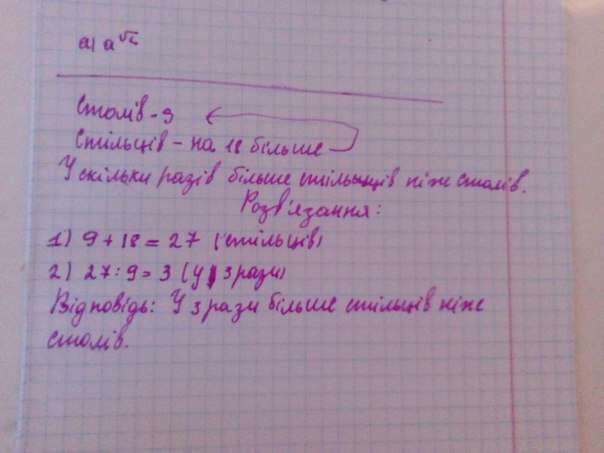 а) a^√2
Столів - 9
Стільців - на 18 більше
У скільки разів більше стільців ніж столів.
Розв'язання:
1) 9 + 18 = 27 (стільців)
2) 27 : 9 = 3 (у 3 рази)
Відповідь: У 3 рази більше стільців ніж
столів.